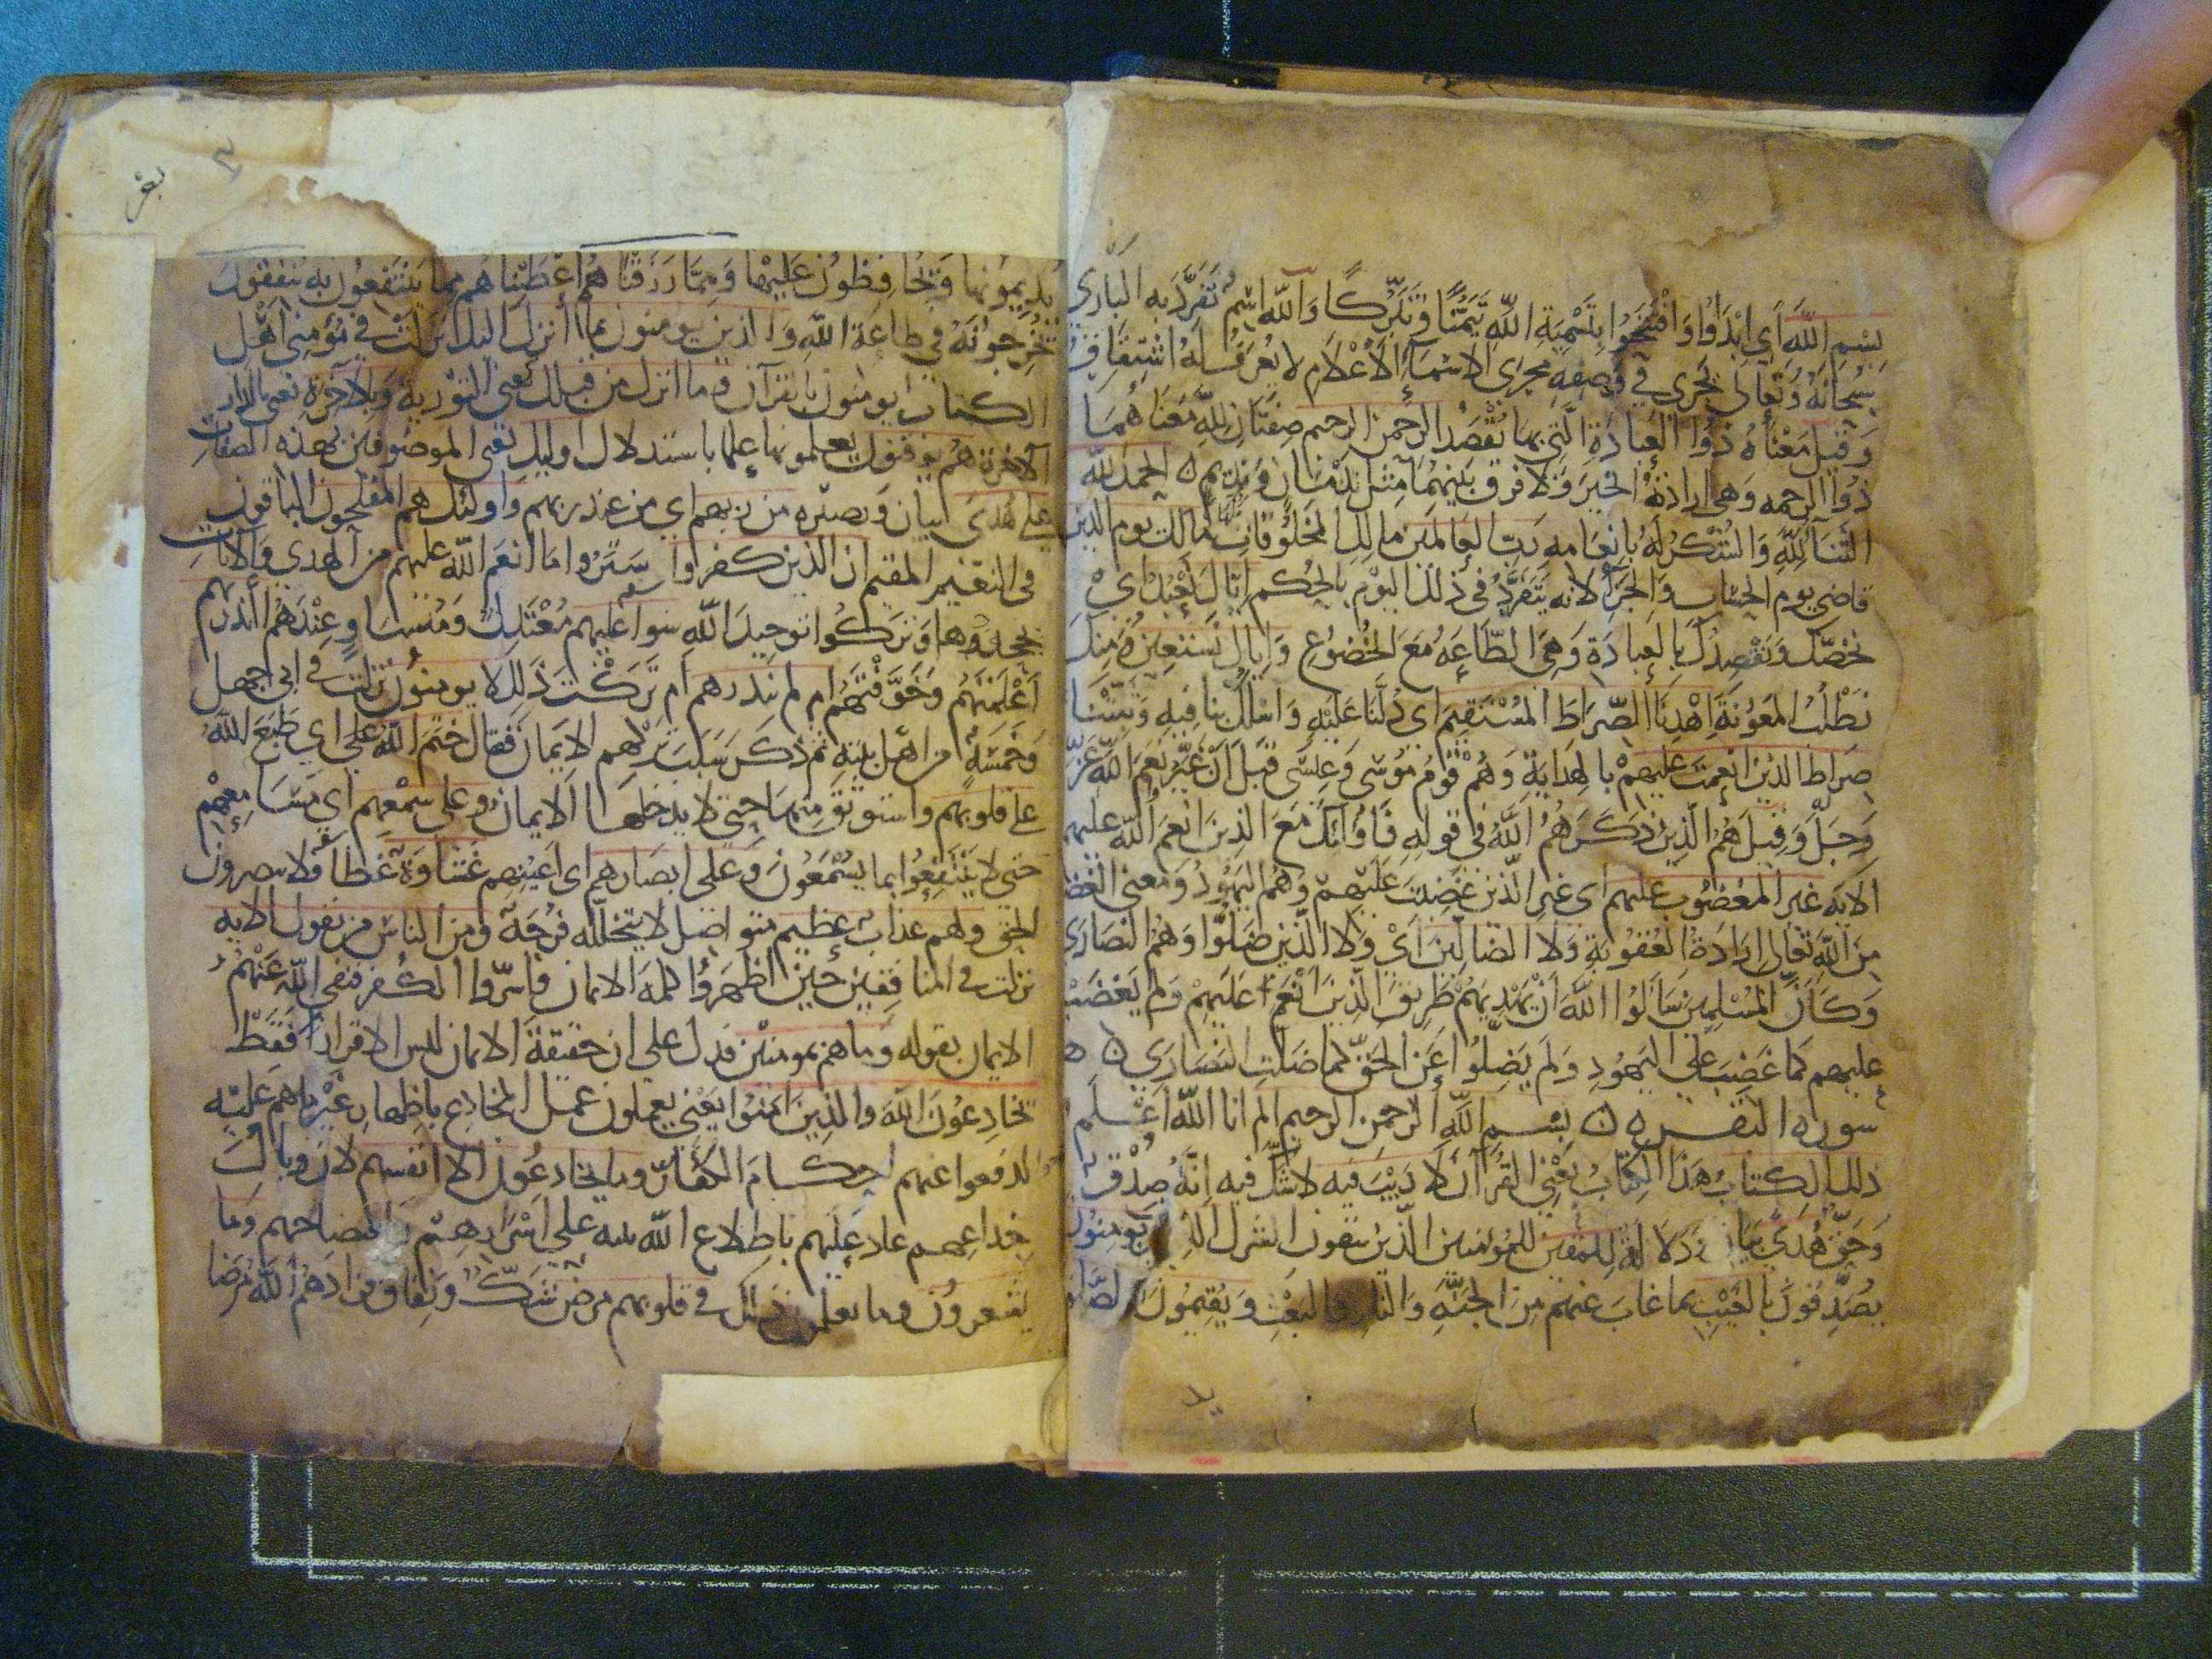 بِسْمِ اللَّهِ أي ابْدَاُوا وَافْتَتِحُوا بِتَسْمِيَةِ اللَّهِ تَيَمُّنًا وَتَبَرُّكًا وَاللَّه اسْمٌ تَفَرَّدَ به البَارِي
سُبحَانَهُ وَتَعَالَى يجري في وَصفِهِ مجرَى الاسْمَاءِ الأعْلَام لا يُعرَفُ لَهُ اشتِقَاقٌ
وَقِيلَ مَعْنَاهُ ذُوا العِبَادَةِ الَّتِي بهَا يُقْصَدُ الرحمن الرحيم صِفَتَانِ لِلَّهِ مَعْنَاهُمَا
ذُوا الرحمه وَهي ارادَةُ الخيرَ وَلَا فرق بَيْنهُمَا مثل ندمَان وَنديم ٥ الحمدُ للَّه
الثَّنَآءُ لِلَّهِ وَالشُّكْرُ لَهُ بِانعَامه رَبِّ العَالمين مالك المخلُوقَات مالك يوم الدين
قاضي يوم الحسَاب وَالجزَآ لأنه يَتَفَرَّدُ في ذلك اليَوْم بالحُكم اِيَّاكَ نَعْبُدُ ايْ
نخصُّك وَنقْصِدُكَ بِالعِبَادَةِ وَهِيَ الطَّاعَةُ مَعَ الخُضُوعِ وَايَاكَ نَسْتَعِينُ وَمِنكَ
نَطْلُبُ المَعُونَةَ اهْدِنَا الصِّرَاطَ المُسْتَقيمَ اي دُلَّنَا عَلَيْهِ وَاسْلُك بنَا فِيهِ وَثَبِّتْنَا
صِرَاطَ الذين انعَمتَ عَلَيهِمْ بالهدَايَةِ وَهُمْ قَومُ مُوسَى وَعِيسَى قَبلَ أنْ غَيَّرُ نِعَمَ اللَّهِ عَزَّ
وَجَلَّ وَقِيلَ هُمُ الذِين ذكَرَهُمُ اللَّهُ في قولِهِ فَأُولَئِكَ مَعَ الذِينَ انْعَمَ اللَّه عليهم
الآيَه غير المَغْضُوبِ عليهم اي غيرِ الذين غَضِبْتَ عَلَيهم وَهُمُ اليَهُودُ وَمعنى الغَضَب
مِنَ اللَّهِ تعَالى ارَادَةُ العُقُوبَةِ وَلا الضالّينَ ايْ وَلا الَّذين ضَلُّوا وَهُم النصَارَى
وَكَانَّ المُسْلِمِينَ سَالُوا اللَّهَ انْ يَهْدِيَهُمْ طَرِيقَ الذِينَ انْعَمَ عَلَيهِمْ وَلَم يَغْضَبْ
عليهم كَمَا غَضِبَ علَى اليَهُودِ وَلَم يَضِلُّوا عَنِ الحَقِّ كما ضَلّتِ النصَارَى ٥
سوره البقـــره ٥ بِسْمِ اللَّهِ الرحمن الرحيم الم انا اللَّهُ أعْلَم
ذلك الكِتَابُ هَذَا الكِتَابُ يَعْنِي القُرآنَ لَا رَيْبَ فيه لا شَكَّ فيه اِنَّهُ صِدْقٌ
وَحَقٌّ هُدًى بيَان وَدلَالَةٌ لِلمتقين لِلمُؤمنين الذِينَ يتقونَ الشرك الذِين يومنُونَ
يُصَدِّقونَ بالغَيْبِ بما غابَ عنهم مِنَ الجَنَّةِ وَالنار وَالبَعْثِ وَيُقِيمُونَ الصَّلوة
يُدِيمُونَها وَيُحَافِظُونَ عَلَيهَا وَمِمَّا رَزَقْنَا هُم أَعْطَيْنَا هُم مما يَنْتَفِعُونَ بِه يُنفِقُونَ
يُخْرِجُونَهُ فِي طَاعَةِ اللَّهِ وَالذين يومنون بما أنزل اليك نزلَتْ في مُؤمِنِي اَهْل
الكتاب يومنون بالقرآن وَما انزل من قبلك يَعني التوْرية وَبالآخِرَةِ يعني الدار
الآخرة هُم يُوقنون يعلمونها علما باستدلال اوليك يعني الموصُوفين بهذه الصفات
علَى هُدَى بَيان وَبصيرة من ربهم اي من عند ربهم وَاوليك هم المفلحون الباقون
في النعيم المقيم ان الذين كفروا سَتَرُوا مَا أنعَم اللَّه عليهم من الهدي وَالآيات
فجحدوها وَتركُوا توحيدَ اللَّهِ سوا عَليهم مُعْتَدِل وَمُتَسَاوٍ عِنْدَهُم أأنذرتهم
اَعْلَمْتَهُم وَخَوَّفْتَهُم ام لم تنذرهم ام تَرَكْتَ ذَلك لا يومنون نزلت في ابي جهل
وَخَمسَةٍ من اهْل بَيْتِهِ ثم ذكَرَ سَبَبَ تركهم الايمَانَ فقال ختم اللَّه على اي طَبَعَ اللَّهُ
على قلوبهم واستوثق منهَا حتى لا يدخلهَا الايمان وعلى سمْعهم اي مَسَامِعِهِمْ
حتى لا يَنْتَفِعُوا بما يَسْمَعُونَ وَعلى ابصَارهم اى اَعينهم غشَاوَة غِطَآ فَلا يبصرون
الحَق ولهم عَذابٌ عظيم متواصل لا يَتَخَلَّلُه فُرْجَة وَمن الناس من يقول الايه
نزلت في المنافِقِينَ حِينَ اظْهَرُوا كلمَة الايمان وَاسَرّوا الكُفر فنَفى اللَّه عَنْهُمْ
الايمان بقوله وَمَا هم بمومنين فدل على ان حقيقة الايمان ليس الاقرار فَقَطْ
يُخَادِعُونَ اللَّهَ والذِينَ امَنُوا يَعْني يعملون عمل المخادع باظهار غَيْرِ مَا هم عَلَيْهِ
ليدفعوا عنهم احكَامَ الكُفَّار وما يخادعُون الا انفسهم لان وَبَالَ
خداعهم عاد عليهم باطلاع اللَّه نبيه على اسْرَارهِم وَافتضاحهم وَما
يَشعرُونَ وما يعلمون ذلك في قلوبهم مرضٌ شَكٌّ وَنِفَاقٌ فزادهُمُ اللَّهُ مَرَضًا